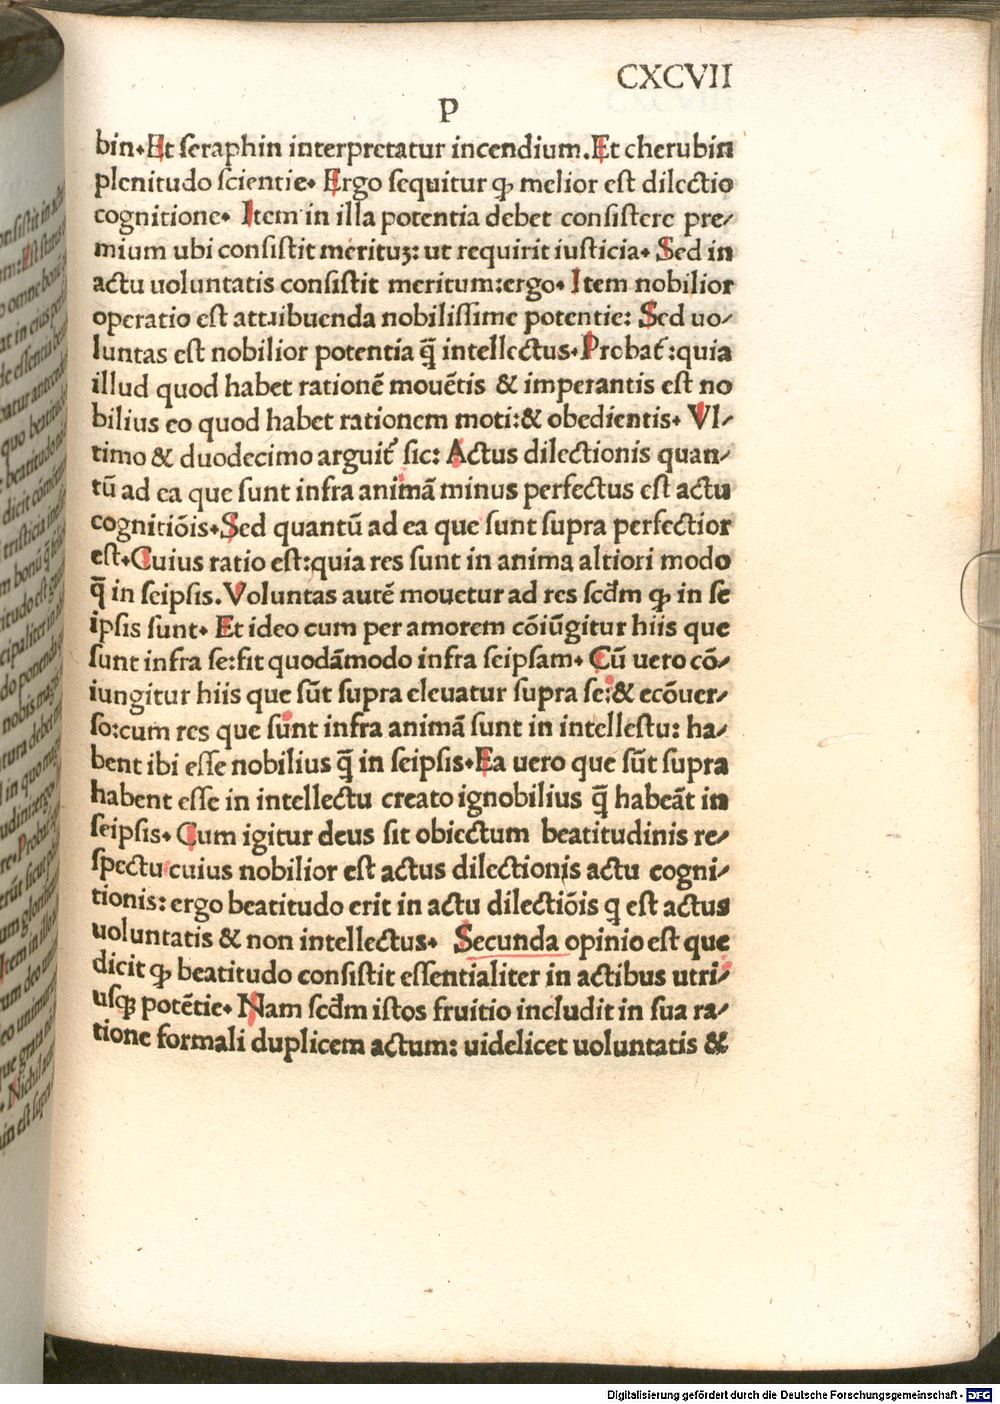 CXCVII
P
bin. Et ſeraphin interpretatur incendium. Et cherubin
plenitudo ſcientie. Ergo ſequitur ꝙ melior eſt dilectio
cognitione. Item in illa potentia debet conſiſtere pre⸗
mium ubi conſiſtit merituꝫ: ut requirit iuſticia. Sed in
actu uoluntatis conſiſtit meritum: ergo. Item nobilior
operatio eſt attribuenda nobiliſſime potentie: Sed uo⸗
luntas eſt nobilior potentia q̄ intellectus. Probat̄: quia
illud quod habet rationē mouētis & imperantis eſt no
bilius eo quod habet rationem moti: & obedientis. Vl⸗
timo & duodecimo arguit̄ ſic: Actus dilectionis quan⸗
tū ad ea que ſunt infra animā minus perfectus eſt actu
cognitiōis. Sed quantū ad ea que ſunt ſupra perfectior
eſt. Cuius ratio eſt: quia res ſunt in anima altiori modo
q̄ in ſeipſis. Voluntas autē mouetur ad res ſcd̄m ꝙ in ſe
ipſis ſunt. Et ideo cum per amorem cōiūgitur hiis que
ſunt infra ſe: fit quodāmodo infra ſeipſam. Cū uero cō⸗
iungitur hiis que ſūt ſupra eleuatur ſupra ſe: & ecōuer⸗
ſo: cum res que ſunt infra animā ſunt in intelleſtu: ha⸗
bent ibi eſſe nobilius q̄ in ſeipſis. Ea uero que ſūt ſupra
habent eſſe in intellectu creato ignobilius q̄ habeāt in
ſeipſis. Cum igitur deus ſit obiectum beatitudinis re⸗
ſpectu cuius nobilior eſt actus dilectionis actu cogni⸗
tionis: ergo beatitudo erit in actu dilectiōis q eſt actus
uoluntatis & non intellectus. Secunda opinio eſt que
dicit ꝙ beatitudo conſiſtit eſſentialiter in actibus utri⸗
uſqꝫ potētie. Nam ſcd̄m iſtos fruitio includit in ſua ra⸗
tione formali duplicem actum: uidelicet uoluntatis &
Digitalisierung gefördert durch die Deutsche Forschungsgemeinschaft - DFG